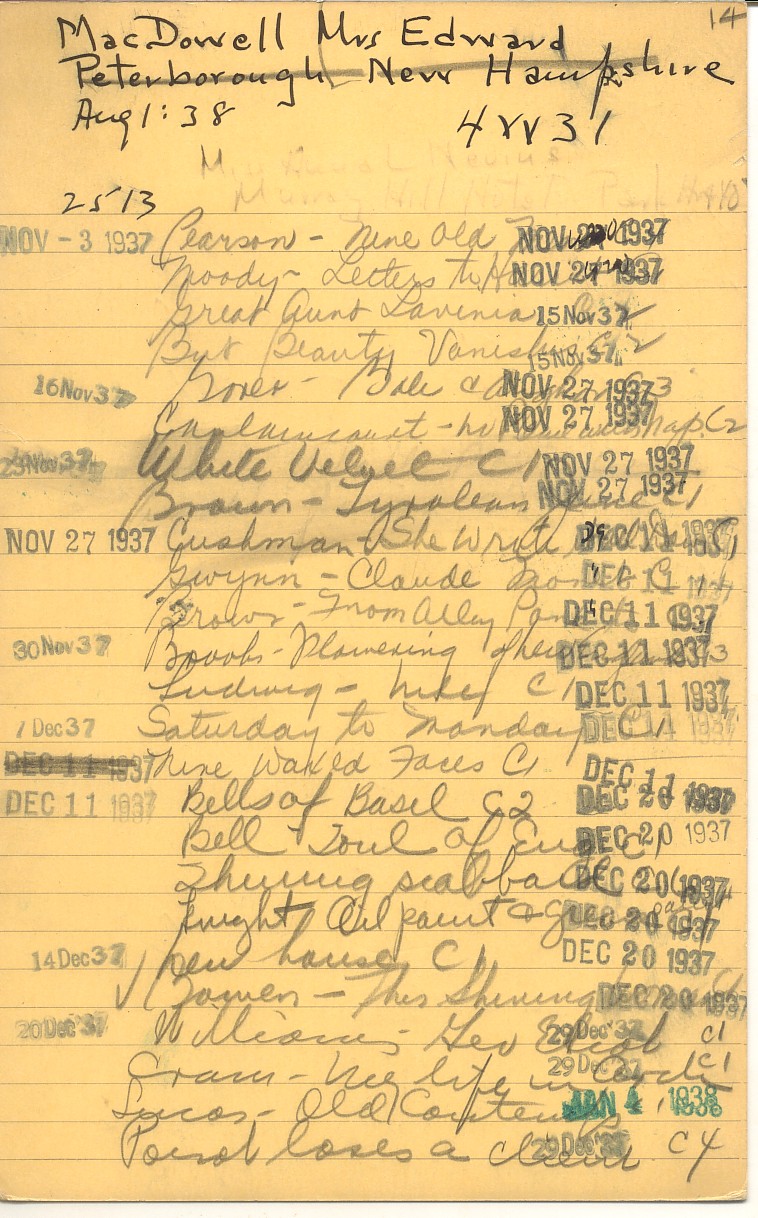 14
MacDowell Mrs Edward
Peterborough New Hampshire
Aug 1:38 4W31
2513
NOV - 3 1937 Pearson - Nine Old NOV 1937
Moody - Letters to NOV 27 1937
Great Aunt Lavinia 15 Nov 37
But Beauty Vanishes C2 15 Nov 37
16 Nov 37 NOV 27 1937 3
Caulaincourt - NOV 27 1937 C2
23 Nov 37 White Velvet C1 NOV 27 1937
Brown - Tyrolean NOV 27 1937 C1
NOV 27 1937 Cushman - She Wrote DEC 11 1937
Gwynn - Claude Monet DEC 11 1937
Brown - From Alley Pond DEC 11 1937
30 Nov 37 Brooks - Flowering of New DEC 11 1937 C3
Ludwig - Nile C1 DEC 11 1937
7 Dec 37 Saturday to Monday C1 DEC 14 1937
DEC 11 1937 Nine Waxed Faces C1 DEC 11
DEC 11 1937 Bells of Basel C2 DEC 20 1937
Bell - Soul of C1 DEC 20 1937
Shining scabbard DEC 20 1937
Knight Oil paint & DEC 20 1937
14 Dec 37 New house C1 DEC 20 1937
Bowen - This Shining DEC 20 1937
20 Dec 37 Williams - Geo Eliot 29 Dec 37 C1
Cram - My life in 29 Dec 37 C1
Lucas - Old Contemp JAN 4 1938
Poirot loses a client 29 Dec 37 C4